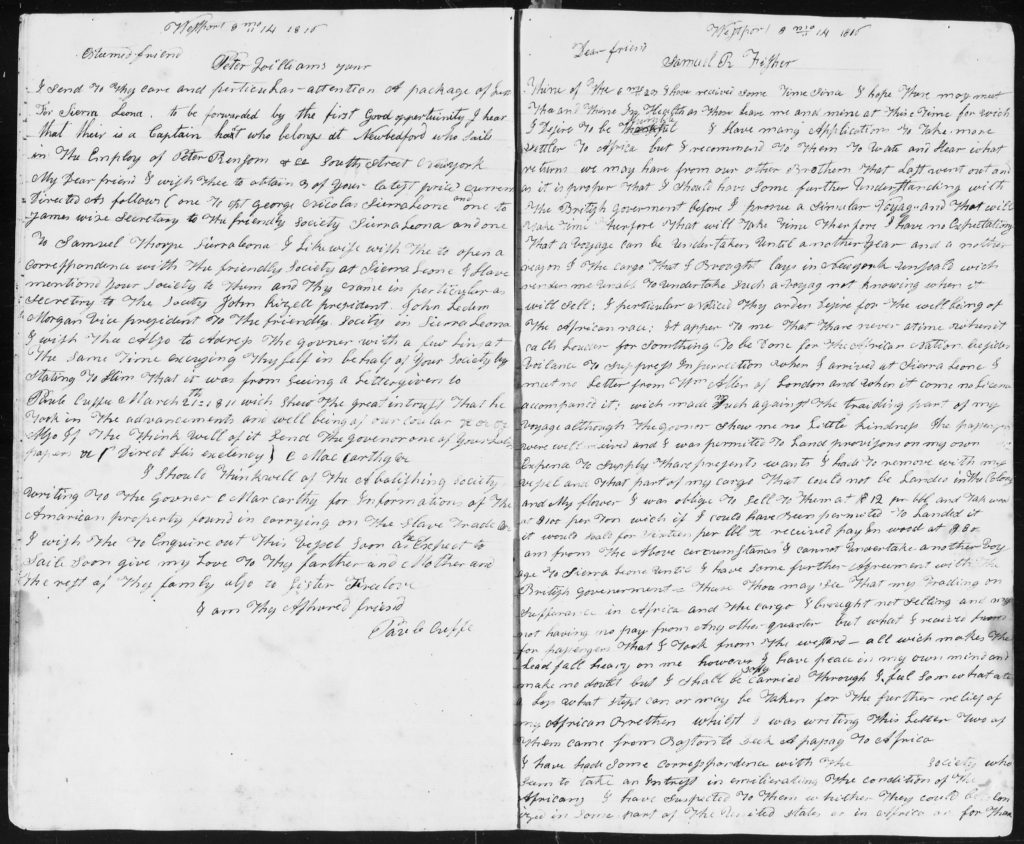 Westport 8 mo 14 1816
Esteemed friend
Peter Williams Junr
I Send to thy care and perticular attention A package of
For Sierra Leona. to be forwarded by the first Good oppertunity I hear
that their is a Captain hast who belongs at Newbedford who Sails
in The Employ of Peter Rensom & Co South Street Newyork
My Dear friend I wish thee to obtain 3 of Your latest prices current
Directed As follows (one To Cpt george Nicolas SierraLeone and one to
James wise Secretary to The friendly Society SierraLeona and one
To Samuel Thorpe SierraLeona I Likewise wish the to open a
Correspondence with The friendly Society at Sierra Leone I Have
mentiond Your Society to Them and Thy name in perticular as
Secretry to The Socity John Kizell president John Leder
Morgan Vice president To The friendly Socity in SierraLeona
I wish Thee Also to Adress The govner with a few Lins at
The Same Time excusing Thy Self in behalf of Your Society by
Stating To Him That it was from Seeing a Letter given to
Paule Cuffe March 21th 1816 wich Shew The great intrust That he
Took in The advancements and well being of our coular &c &c
Also If The Think well of it Send The Govenor one of Your
papers &c ( Direct His exelency) C MacCarthy &c
I Should Think well of The Abolishing Society
writing To The Govner C MacCarthy for Informations of The
American property found in carrying on The Slave Trade &c
I wish The To Enquire out This Vessel Soon as the Expect to
Sail Soon give my Love To Thy farther and Mother and
The rest of Thy family also to Sister Freelove
I am Thy Ashured friend
Paule Cuffe
Westport 8 mo 14 1816
Dear friend
Samuel R Fisher
Thine of The 6 mo 23 I have recived Some Time Sinse I hope These may meet
Thee and Thine Injoy Health as These leave me and mine at This Time for wich
I Desire To be Thankful I Have many Application To Take more
Settler To Africa but I recommend To Them To Wate and Hear what
returns we may have from our other Brothern That Last went out and
as it is proper That I Should have Some further Understanding with
The British goverment before I prosue a Simular Voyage and That will
take Time Therfore That will Take Time Therfore I have no Expectation
That a Voyage can be Undertaken Until another Year and a nother
reason I The cargo That I Brought lays in Newyork Unsoald wich
renders me Unable To Undertake Such a Voyag not knowing when it
will Sell: I perticular Noticed Thy arden Desire for The well being of
The African race: It apper To me That Thare never a time when it
calls Louder for Somthing To be Done for The African Nation besides
Voilance To Suppress Insurrection when I arrived at Sierra Leone I
meet no Letter from Wm Allen of London and when it come no Licence
accompanid it: wich made Such against The traiding part of my
Voyage although The govnor Show me no Little kindness The passengers
were well recived and I was permited To Land provisons on my own
Expence To Supply Thare presents wants I had To remove with my
vessel and That part of my cargo That Could not be Landed in The Colony
and My flower I was oblige To Sell To Them at $12 per bbl and
at $100 per Ton wich if I could have Been permited To Landed it
it would Sold for per bbl & received pay In wood at $80
am from The Above circumstances I cannot Undertake another Voy
age To Sierra Leone Until I have Some further Agreement with The
British Goverment Thus Thou may See That my Trading on
Sufferance in Africa and The cargo I brought not Selling and my
not having no pay from Any other quarter but what I recived from
for passengers That I Took from The westard – all wich makes The
Lead fall heavy on me however I have peace in my own mind and
make no doubt but I Shall be Safly carried Through I feel Somwhat at
a Loss what Steps can or may be Taken for The further relief of
my African Brethen whilst I was writing This Letter Two of
Them came from Boston to Seek A pasag To Africa
I have had Some correspondence with The Society who
Seem to take an Intrest in emilierating The condition of The
Africans I have Suspected To Them whether They could be Colon
ized in Some part of The United States or in Africa as for Them